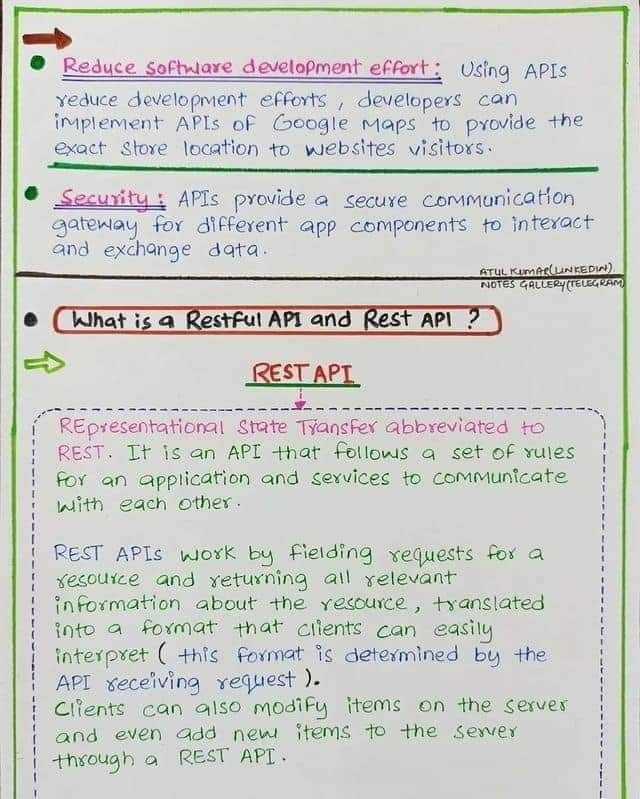 Reduce software development effort : Using APIs
reduce development efforts , developers can
implement APIs of Google Maps to provide the
exact store location to websites visitors.
Security : APIs provide a secure communication
gateway for different app components to interact
and exchange data.
ATUL KUMAR(LINKEDIN)
NOTES GALLERY(TELEGRAM)
What is a Restful API and Rest API ?
REST API
REpresentational State Transfer abbreviated to
REST. It is an API that follows a set of rules
for an application and services to communicate
with each other.
REST APIs work by fielding requests for a
resource and returning all relevant
information about the resource, translated
into a format that clients can easily
interpret ( this format is determined by the
API receiving request ).
Clients can also modify items on the server
and even add new items to the server
through a REST API.